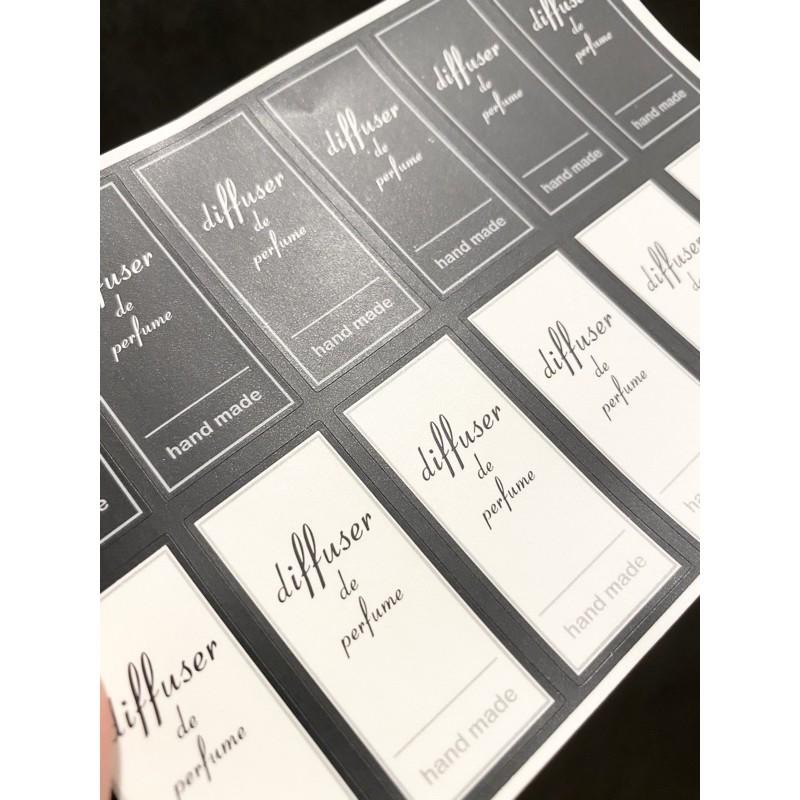 diffuser
de
perfume
hand made
diffuser
de
perfume
hand made
diffuser
de
perfume
hand made
diffuser
de
perfume
hand made
diffuser
de
perfume
hand made
diffuser
de
perfume
hand made
diffuser
de
perfume
hand made
diffuser
de
perfume
hand made
diffuser
de
perfume
diffuser
de